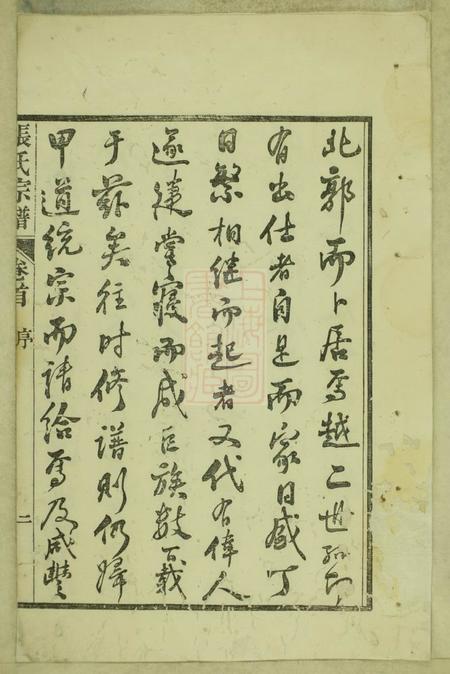 北郭而卜居焉越二世孫即
有出仕者自是而家日盛丁
日繁相继而起者又代有偉人
遂建堂寝而成巨族数百载
于兹矣往时修谱则仍歸
甲道统宗而請给焉及咸豐
張氏宗譜
卷首
序
二